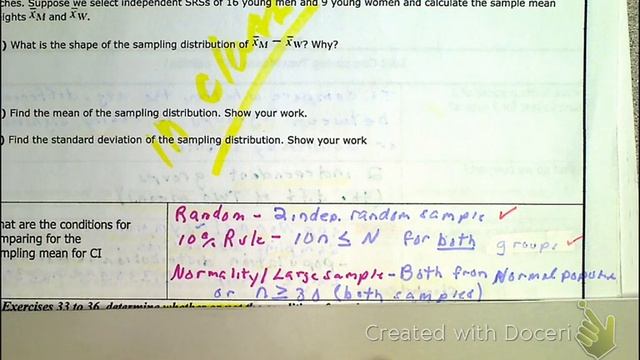 ches. Suppose we select independent SRSs of 16 young men and 9 young women and calculate the sample mean
ights x̄M and x̄W.
) What is the shape of the sampling distribution of x̄M − x̄W? Why?
in class
) Find the mean of the sampling distribution. Show your work.
) Find the standard deviation of the sampling distribution. Show your work
hat are the conditions for
mparing for the
mpling mean for CI
Random - 2 indep. random sample ✓
10% Rule - 10n ≤ N for both groups ✓
Normality/Large sample - Both from Normal
or n ≥ 30 (both samples)
Exercises 33 to 36, determine whether or not the
Created with Doceri